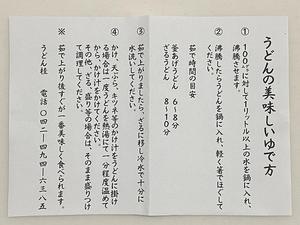 うどんの美味しいゆで方
① 100gに対して1リットル以上の水を鍋に入れ、
沸騰させます。
② 沸騰したらうどんを鍋に入れ、軽く箸でほぐして
ください。
茹で時間の目安
釜あげうどん 6～8分
ざるうどん 8～10分
③ 茹で上がりましたら、ざるに移し冷水で十分に
水洗いしてください。
④ かけ、天ぷら、キツネ等のかけ汁をうどんに掛け
る場合は一度うどんを熱湯にて一分程度温めて
から、かけ汁をかけてください。
その他、ざる、盛り等の場合は、そのまま盛りつけ
て調理してください。
※ 茹で上がり後すぐが一番美味しく食べられます。
うどん楼 電話 〇四二―四九四―六三八五